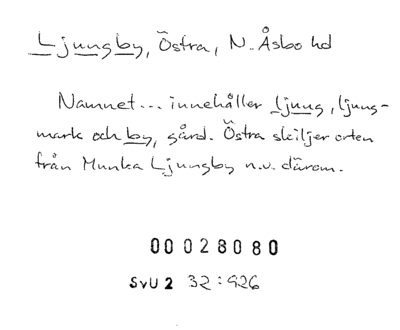 Ljungby, Östra, N. Åsbo hd
Namnet... innehåller ljung, ljung-
mark och by, gård. Östra skiljer orten
från Munka Ljungby n.v. därom.
00028080
SvU 2 32:926